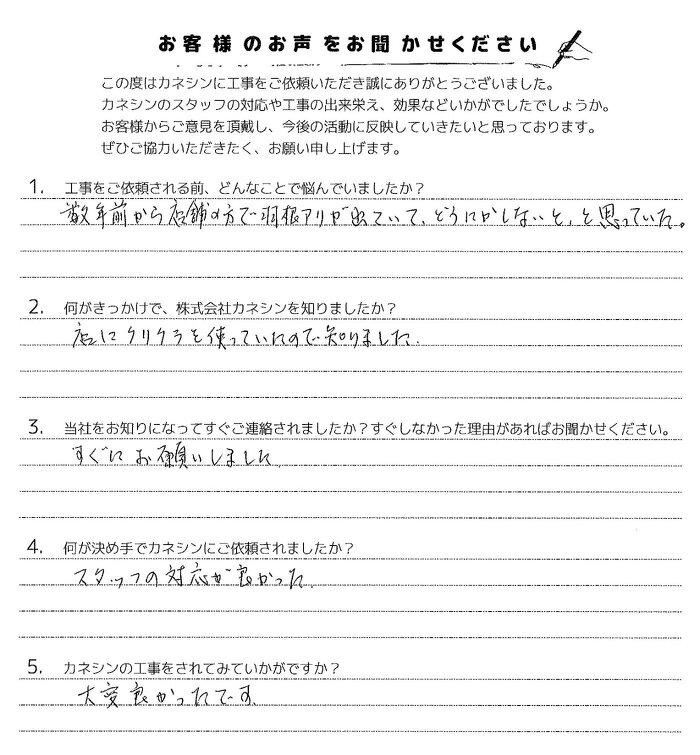 お客様のお声をお聞かせください
この度はカネシンに工事をご依頼いただき誠にありがとうございました。
カネシンのスタッフの対応や工事の出来栄え、効果などいかがでしたでしょうか。
お客様からご意見を頂戴し、今後の活動に反映していきたいと思っております。
ぜひご協力いただきたく、お願い申し上げます。
1. 工事をご依頼される前、どんなことで悩んでいましたか？
数年前から店舗の方で羽根アリが出ていて、どうにかしないと、と思っていた。
2. 何がきっかけで、株式会社カネシンを知りましたか？
店にクリクラを使っていたので知りました.
3. 当社をお知りになってすぐご連絡されましたか？すぐしなかった理由があればお聞かせください。
すぐにお願いしました.
4. 何が決め手でカネシンにご依頼されましたか？
スタッフの対応が良かった.
5. カネシンの工事をされてみていかがですか？
大変良かったです.